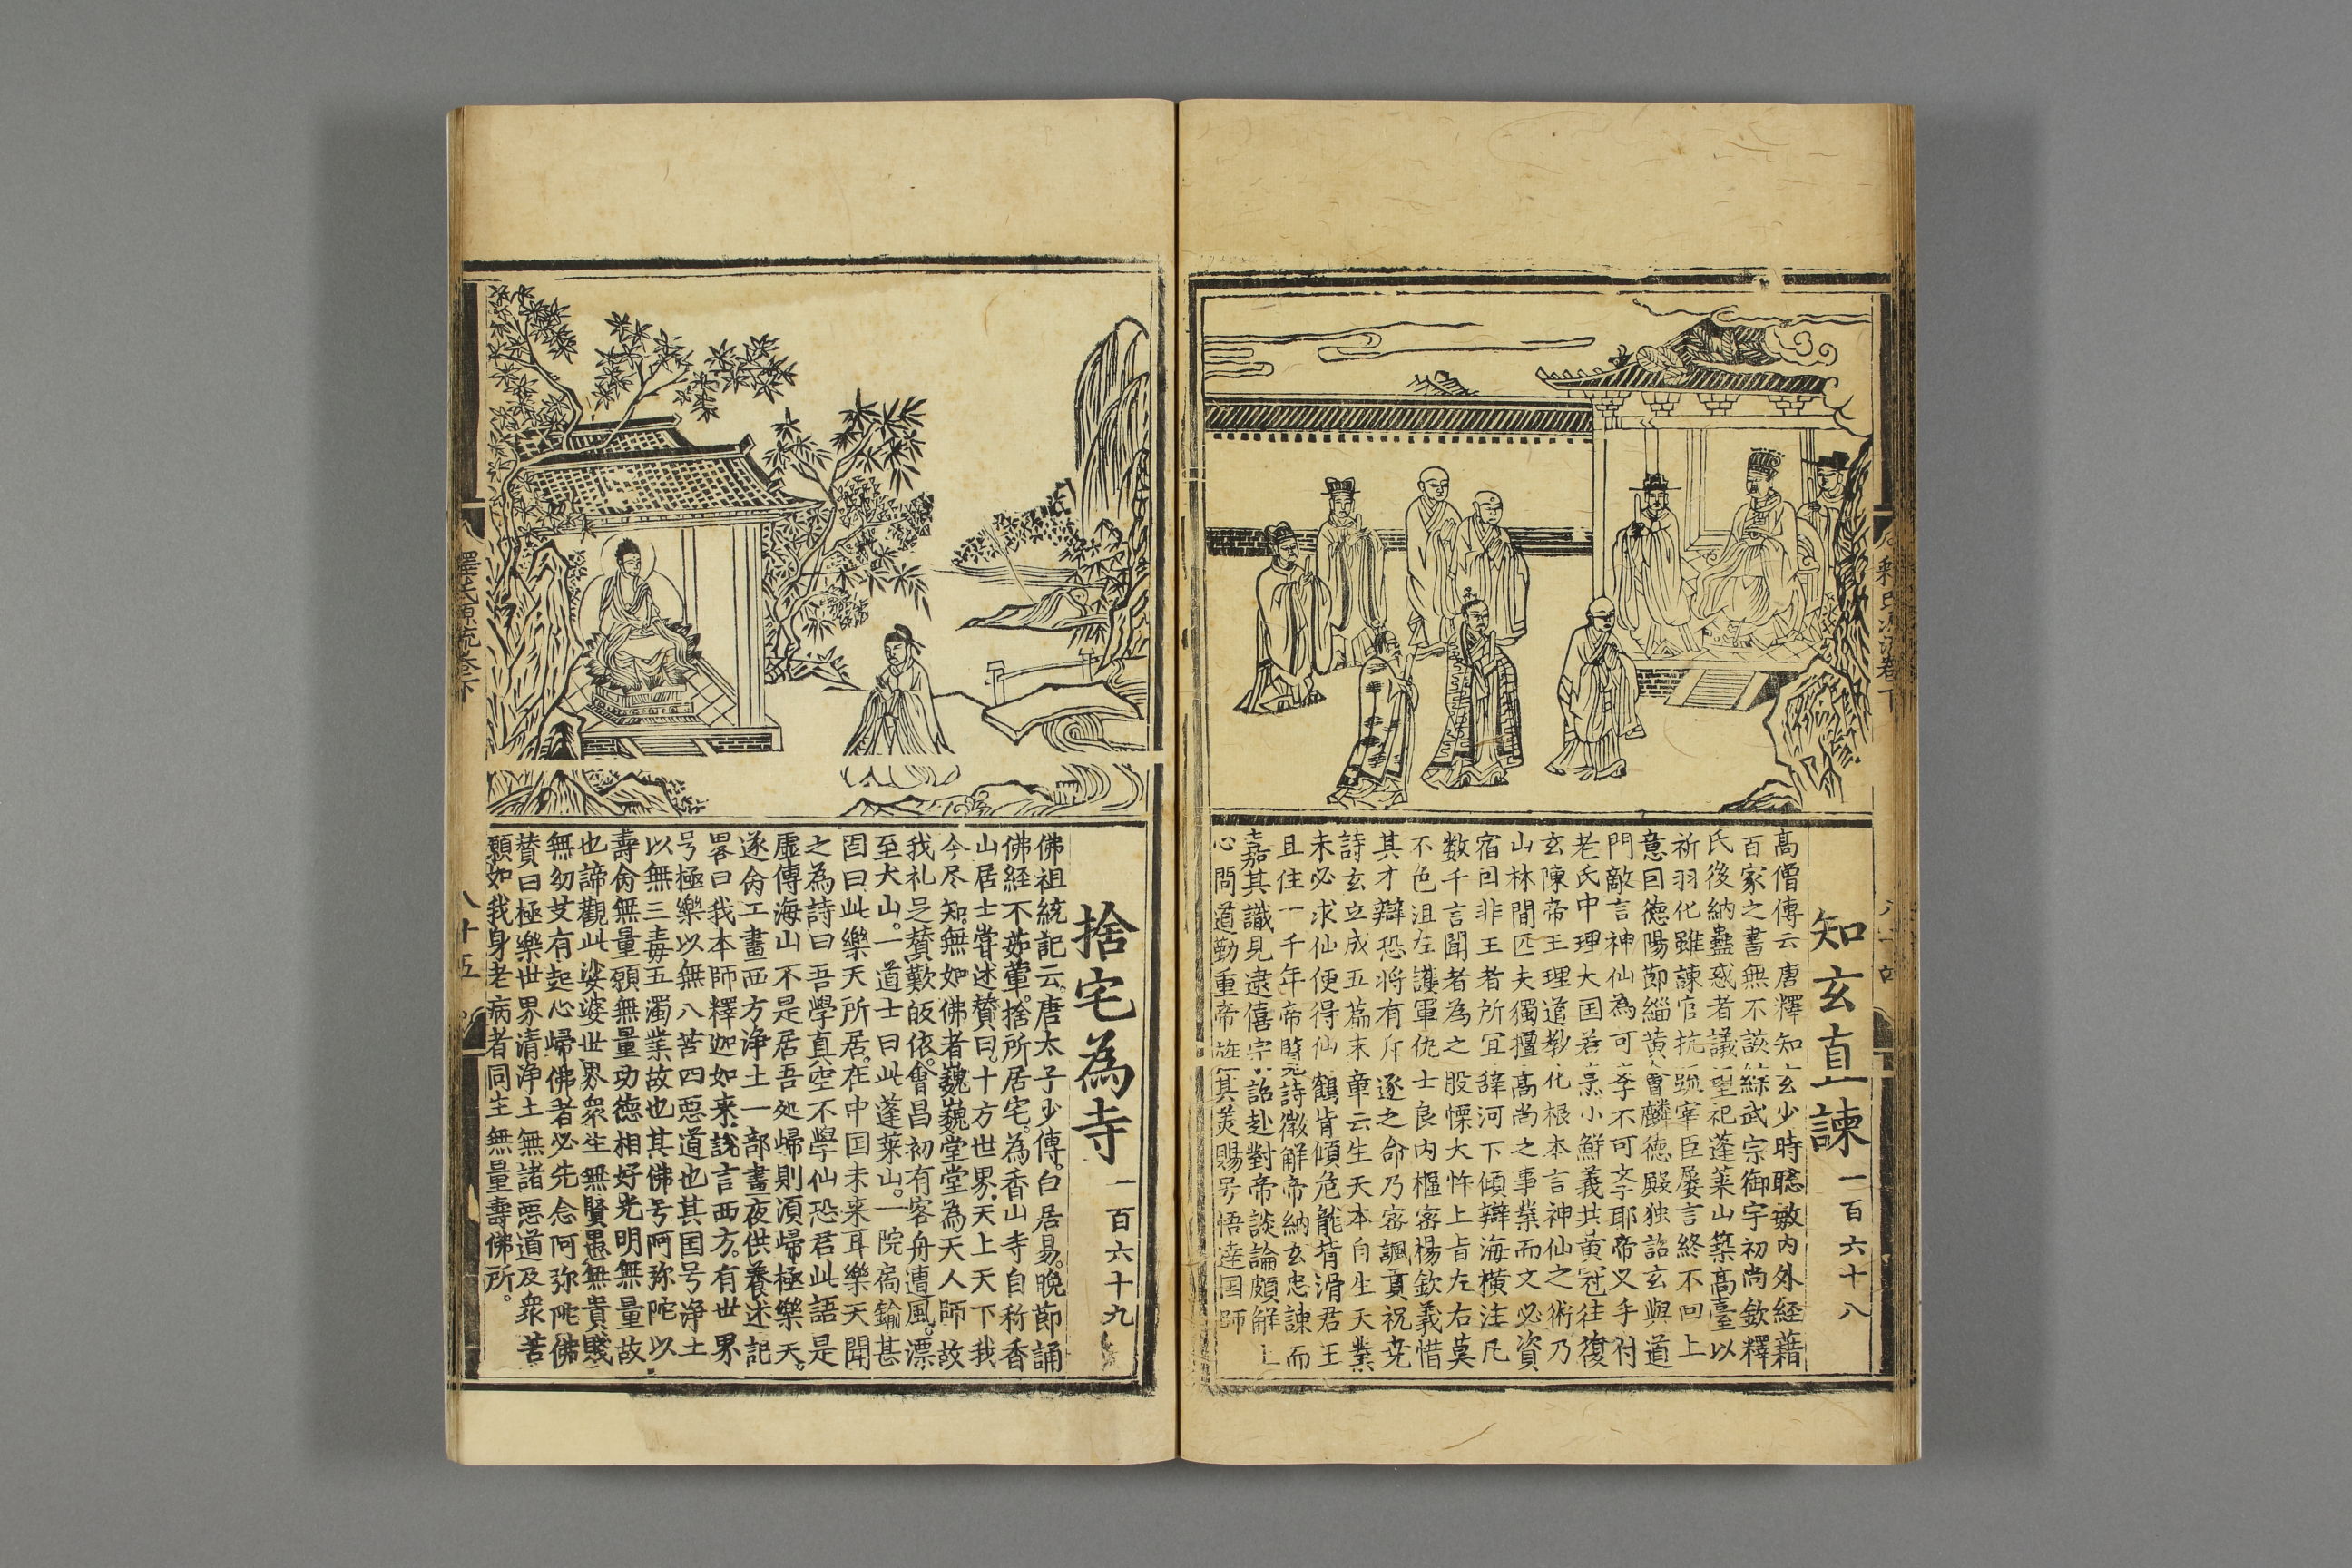 知玄直諫 一百六十八
高僧傳云唐釋知玄少時聦敏内外經藉
百家之書無不該綜武宗御宇初尚欽釋
氏後納蠱惑者議望祀蓬萊山築高臺以
祈羽化雖諫官抗䟽宰臣屡言終不回上
意囙徳陽節緇黄會麟徳殿独詔玄與道
門敵言神仙為可斈不可斈耶帝叉手付
老氏中理大国若烹小鮮義共黄冠往復
玄陳帝王理道教化根本言神仙之術乃
山林間匹夫獨擅高尚之事業而文必資
宿囙非王者所宜辭河下傾辯海横注凡
数千言聞者為之股慄大忤上㫖左右莫
不色沮左護軍仇士良内樞密楊欽義惜
其才辯恐将有斥逐之命乃宻諷貢祝尭
詩玄立成五篇末章云生天本自生天業
未必求仙便得仙鶴背傾危龍背滑君王
且住一千年帝覧詩微解帝納玄忠諫而
嘉其識見逮僖宗詔赴對帝談論頗解上
心問道勤重帝旌其美賜号悟達国師
釋氏源流卷下
捨宅為寺 一百六十九
佛祖統記云。唐太子少傅。白居易。晚節誦
佛經不茹葷。捨所居宅。為香山寺自称香
山居士嘗述賛曰。十方世界。天上天下我
今尽知。無如佛者巍巍堂堂為天人師故
我礼足賛歎皈依。會昌初有客舟遭風。漂
至大山。一道士曰此蓬莱山。一院扃鐍甚
固曰此樂天所居。在中国未来耳樂天聞
之為詩曰吾學真空不學仙恐君此語是
虚傳海山不是居吾処歸則湏歸極樂天。
遂命工畫西方浄土一部晝夜供養述記
畧曰我本師釋迦如来。說言西方。有世界
号極樂以無八苦四惡道也其国号浄土
以無三毒五濁業故也其佛号阿弥陀以
壽命無量願無量功徳相好光明無量故
也諦觀此娑婆世界衆生無賢愚無貴賤
無幼艾有起心歸佛者必先念阿弥陀佛
賛曰極樂世界清浄土無諸惡道及衆苦
願如我身老病者同生無量壽佛所。
釋氏源流卷下
八十五